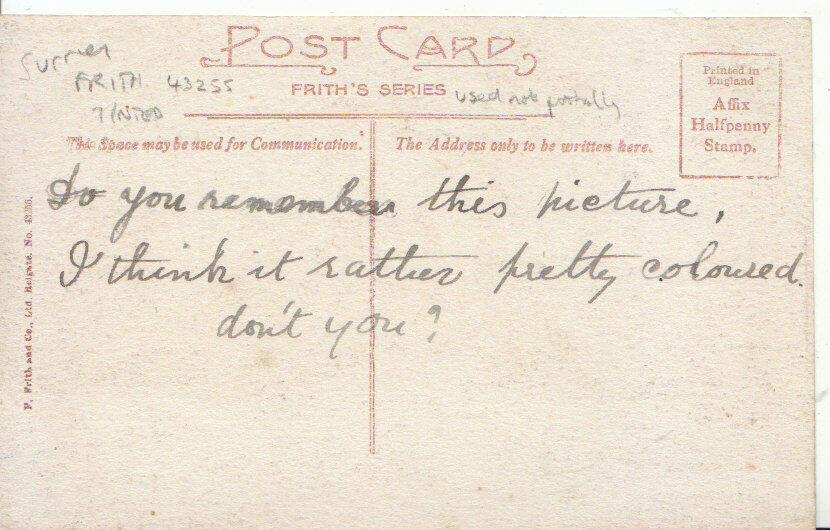 POST CARD
Surrey
FRITH 43255
TINTED
FRITH'S SERIES
used not postally
Printed in
England
Affix
Halfpenny
Stamp.
This Space may be used for Communication.
The Address only to be written here.
Do you remember this picture,
I think it rather pretty coloured.
don't you?
F. Frith and Co., Ltd. Reigate. No. 43255.